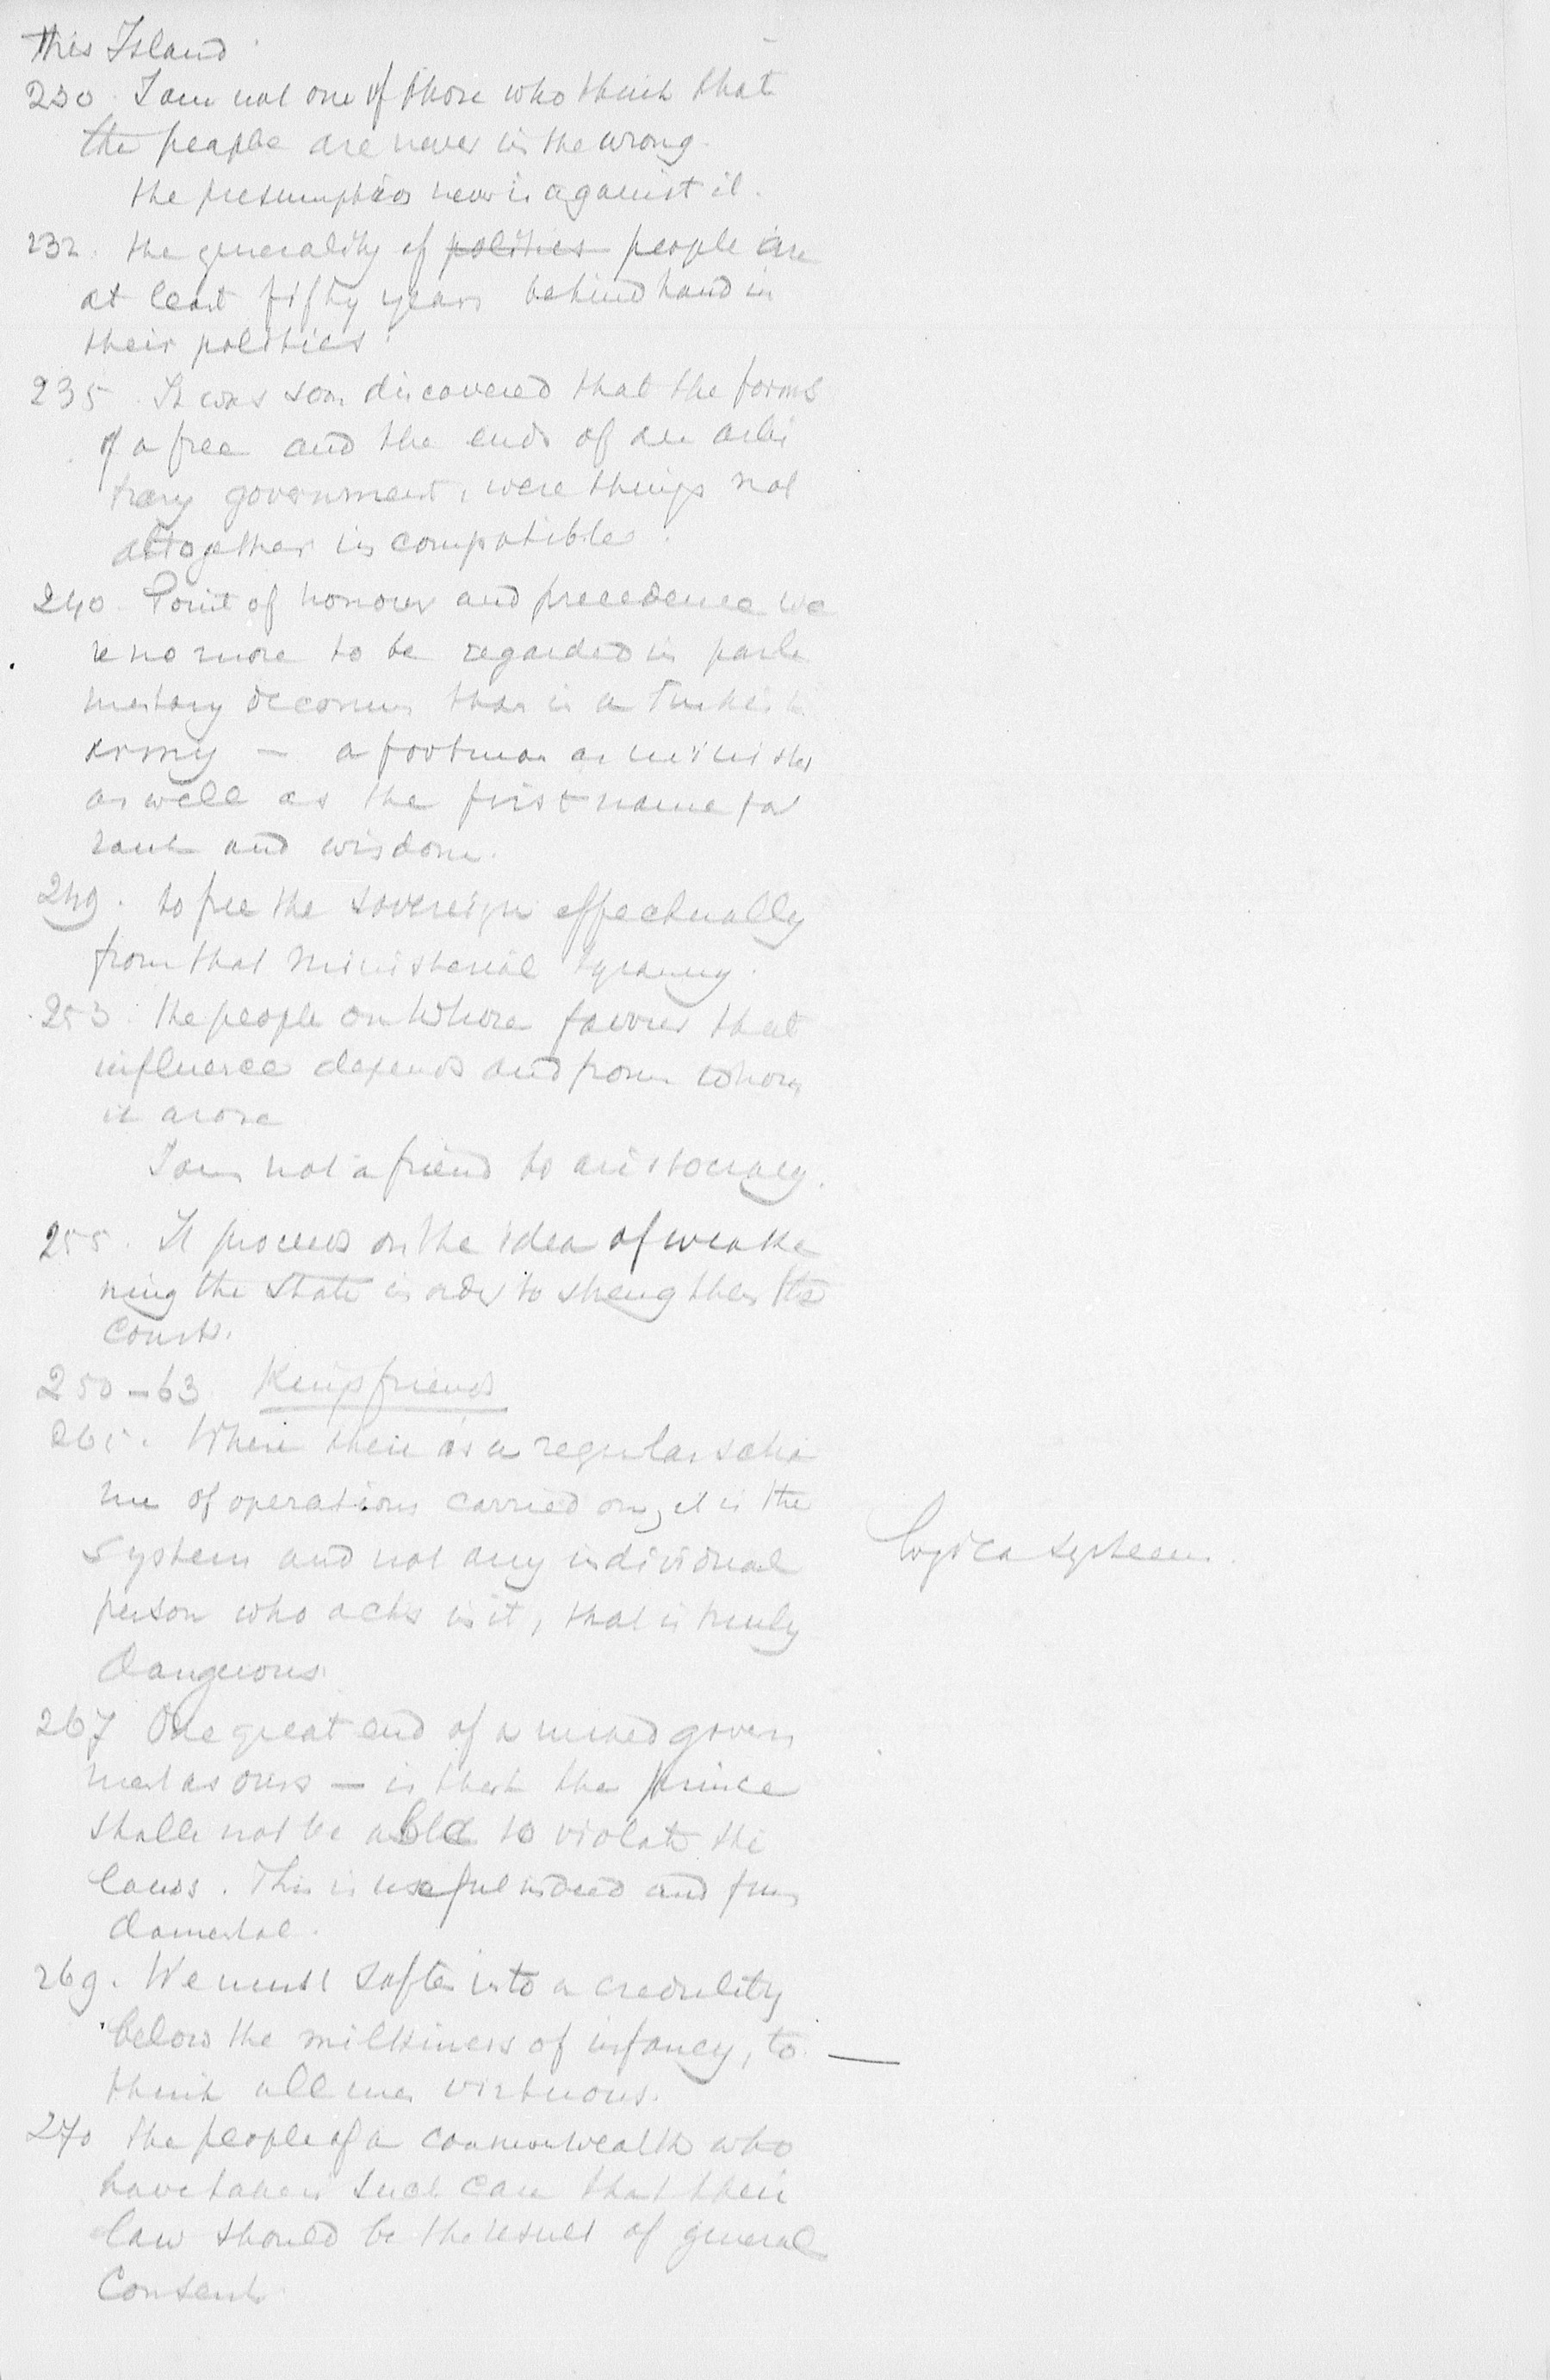 this Island
230. I am not one of those who think that
the peaple are never in the wrong.
the presumption never is against it.
232. the generality of politics people are
at least fifty years behind hand in
their politics.
235. It was soon discovered that the forms
of a free and the ends of an arbi
trary government, were things not
altogether incompatible.
240. Point of honour and precedence we
re no more to be regarded in parla
mentary decorum than in a Turkish
army — a footman as minister
as well as the first name for
rank and wisdom.
249. to free the sovereign effectually
from that ministerial tyranny.
253. the people on whose favour that
influence depends and from whom
it arose
I am not a friend to aristocracy.
255. It proceeds on the idea of weake
ning the State in order to strengthen the
Court.
250-63. Kings friends
265. Where there is a regular sche
me of operations carried on, it is the
system and not any individual
person who acts in it, that is truly
dangerous.
267 One great end of a mixed govern
ment as ours — is that the prince
shall not be able to violate the
laws. This is useful indeed and fun
damental.
269. We must soften into a credulity
below the milkiness of infancy, to —
think all men virtuous.
270 the people of a commonwealth who
have taken such care that their
law should be the result of general
Consent.